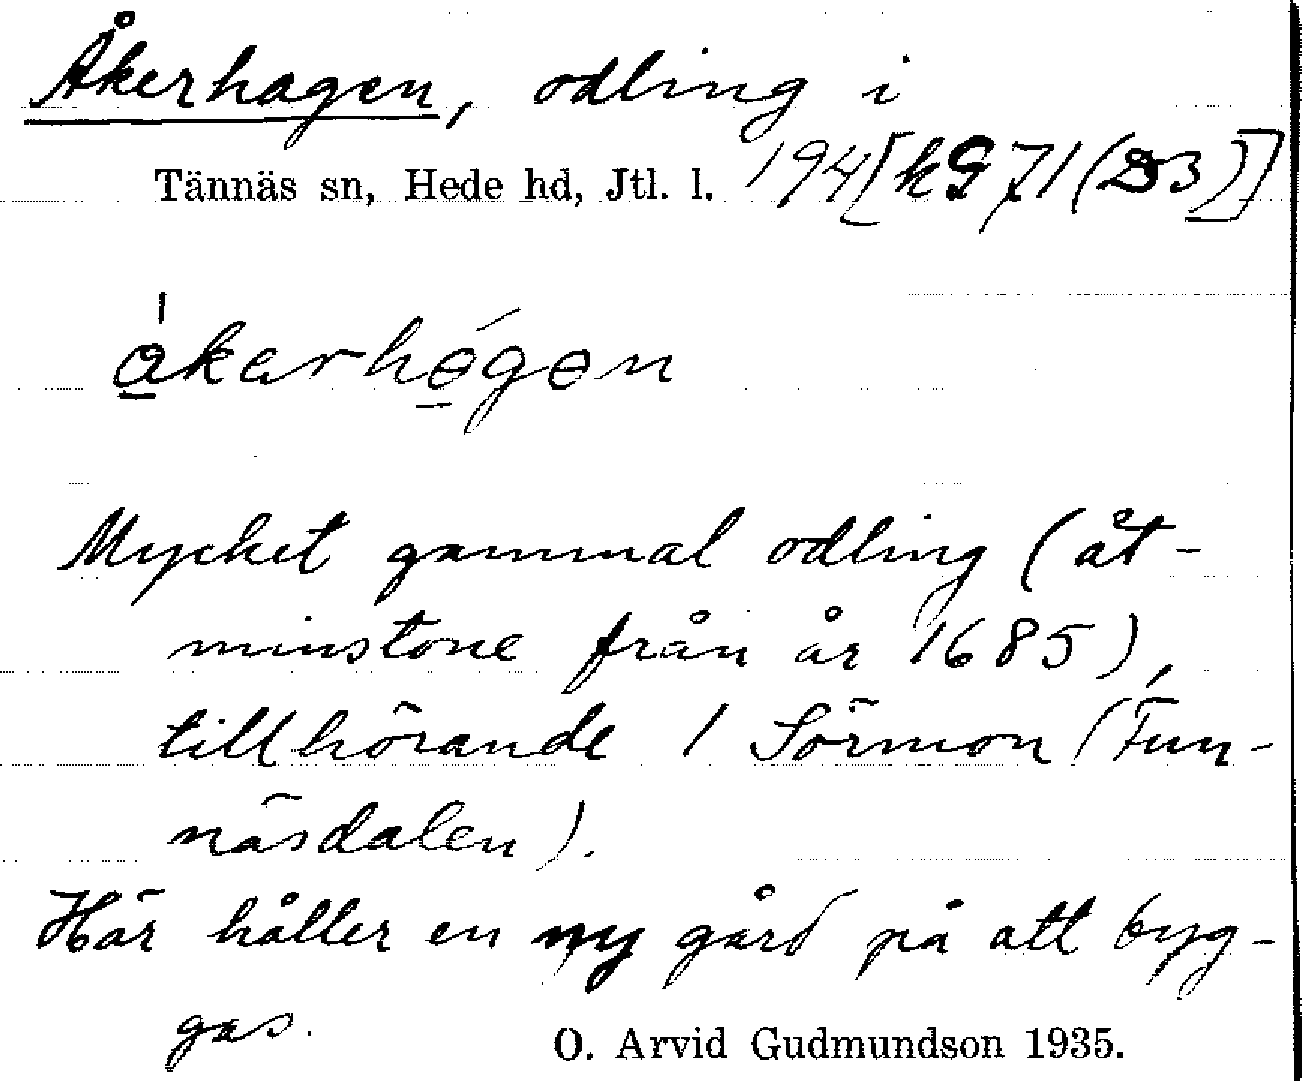 Åkerhagen, odling i
Tännäs sn, Hede hd, Jtl. l. 194[kG71(D3)]
Mycket gammal odling (åt-
minstone från år 1685),
tillhörande 1 Sörmon (Fun-
näsdalen).
Här håller en ny gård på att byg-
gas.
O. Arvid Gudmundson 1935.